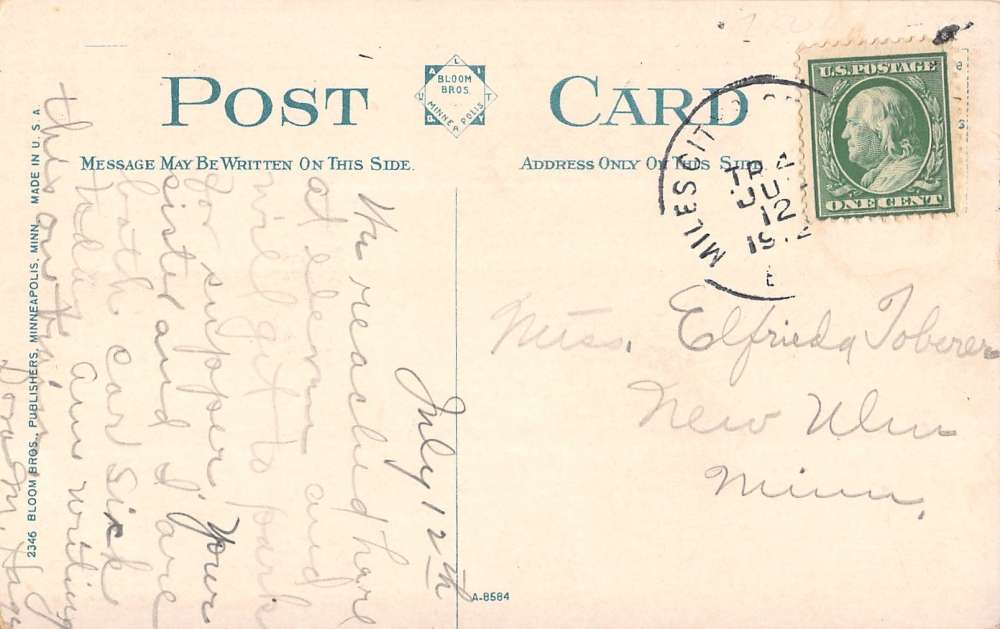 POST CARD
BLOOM
BROS.
MINNEAPOLIS
MESSAGE MAY BE WRITTEN ON THIS SIDE.
ADDRESS ONLY ON THIS SIDE
U.S. POSTAGE
ONE CENT
MILES CITY
TR. 
JUL
12
1912
July 12th
We reached here
at eleven and
will go to park
for supper. Your
sister and I are
both car sick
today am writing
this on train
Dora M.
Miss. Elfrieda Toberer
New Ulm
Minn.
2346 BLOOM BROS., PUBLISHERS, MINNEAPOLIS, MINN. MADE IN U. S. A
A-8584